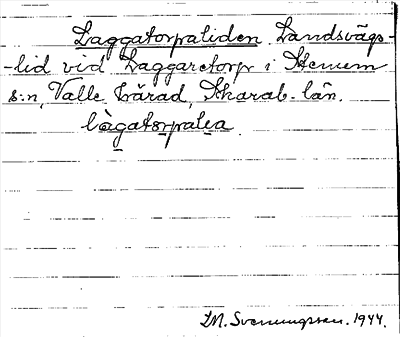 Laggatorpaliden. Landsvägs-
-lid vid Laggaretorp i Stenum
s:n, Valle härad, Skarab. län.
làgatorpalia.
LM. Svenungsson. 1944.